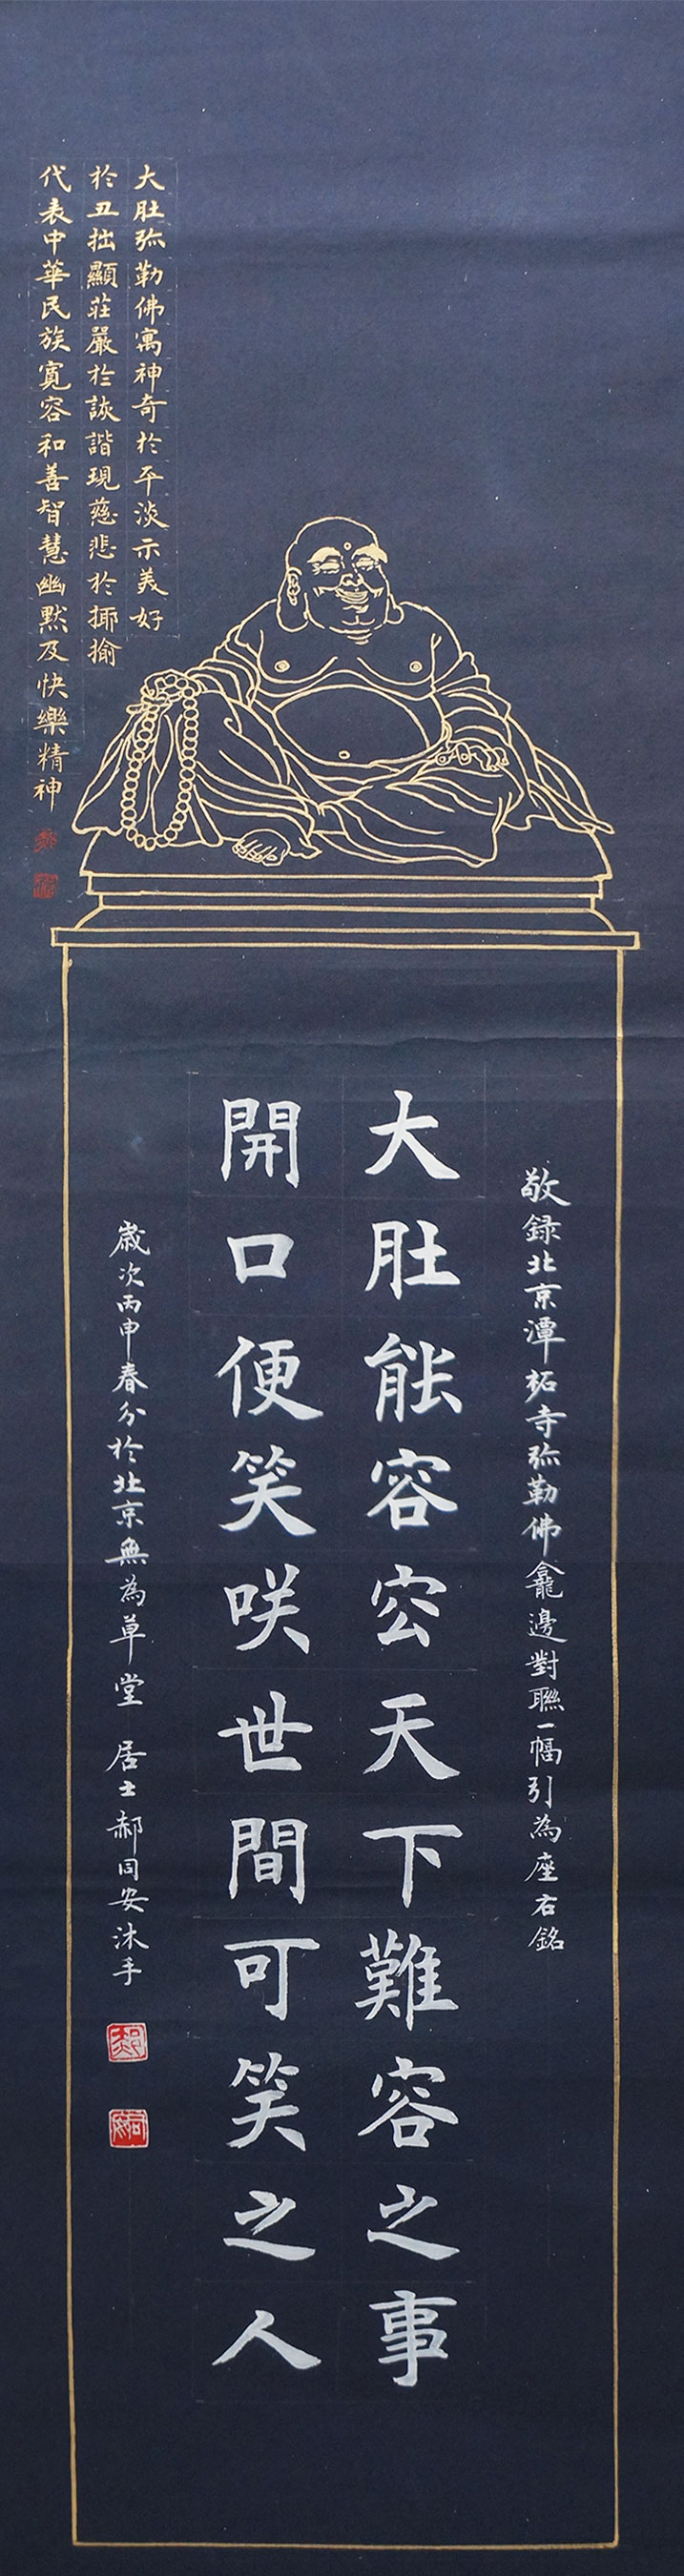 大肚弥勒佛寓神奇於平淡示美好
於丑拙顯莊嚴於詼諧現慈悲於揶揄
代表中華民族寬容和善智慧幽默及快樂精神
敬録北京潭柘寺弥勒佛龕邊對聯一幅引為座右銘
大肚能容容天下難容之事
開口便笑咲世間可笑之人
歲次丙申春分於北京無為草堂 居士郝同安沐手